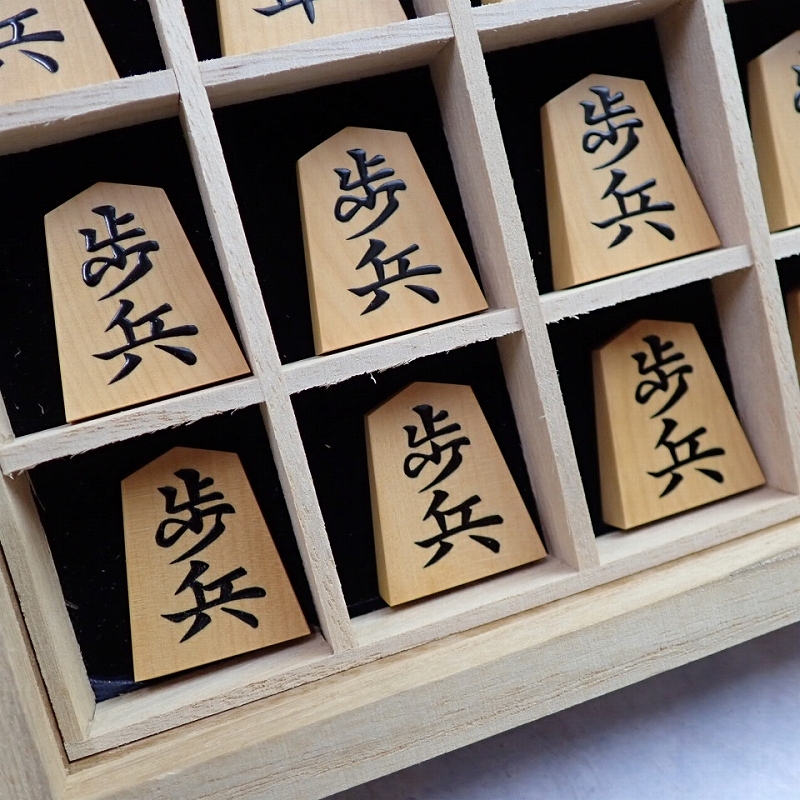 歩兵
歩兵
歩兵
歩兵
歩兵
歩兵